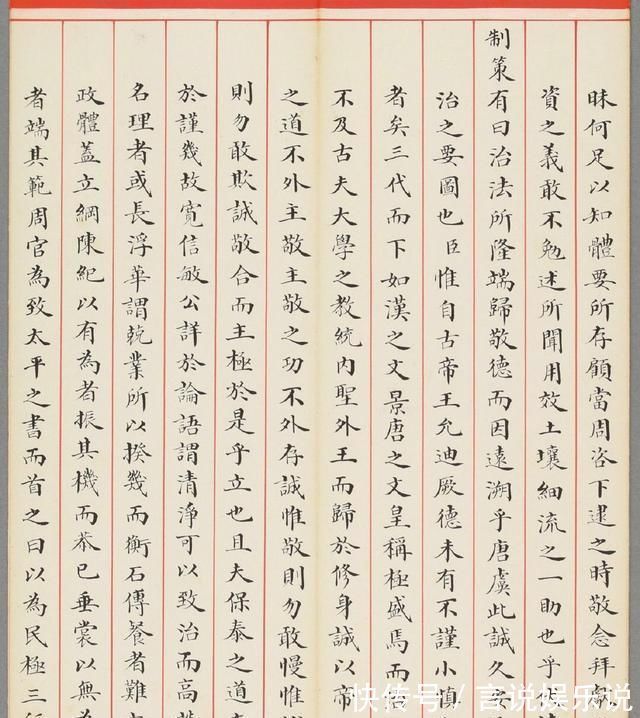 昧何足以知體要所存顧當周咨下逮之時敬念拜獻
資之義敢不勉述所聞用效土壤細流之一助也乎
制策有曰治法所隆端歸敬德而因遠溯乎唐虞此誠久
治之要圖也臣惟自古帝王允迪厥德未有不謹小慎
者矣三代而下如漢之文景唐之文皇稱極盛焉而
不及古夫大學之教統內聖外王而歸於修身誠以帝
之道不外主敬主敬之功不外存誠惟敬則勿敢慢惟
則勿敢欺誠敬合而主極於是乎立也且夫保泰之道
於謹幾故寬信敏公詳於論語謂清淨可以致治而高
名理者或長浮華謂兢業所以揆幾而衡石傳餐者難
政體蓋立綱陳紀以有為者振其機而恭己垂裳以無為
者端其範周官為致太平之書而首之曰以為民極三
快传号/言说娱乐说